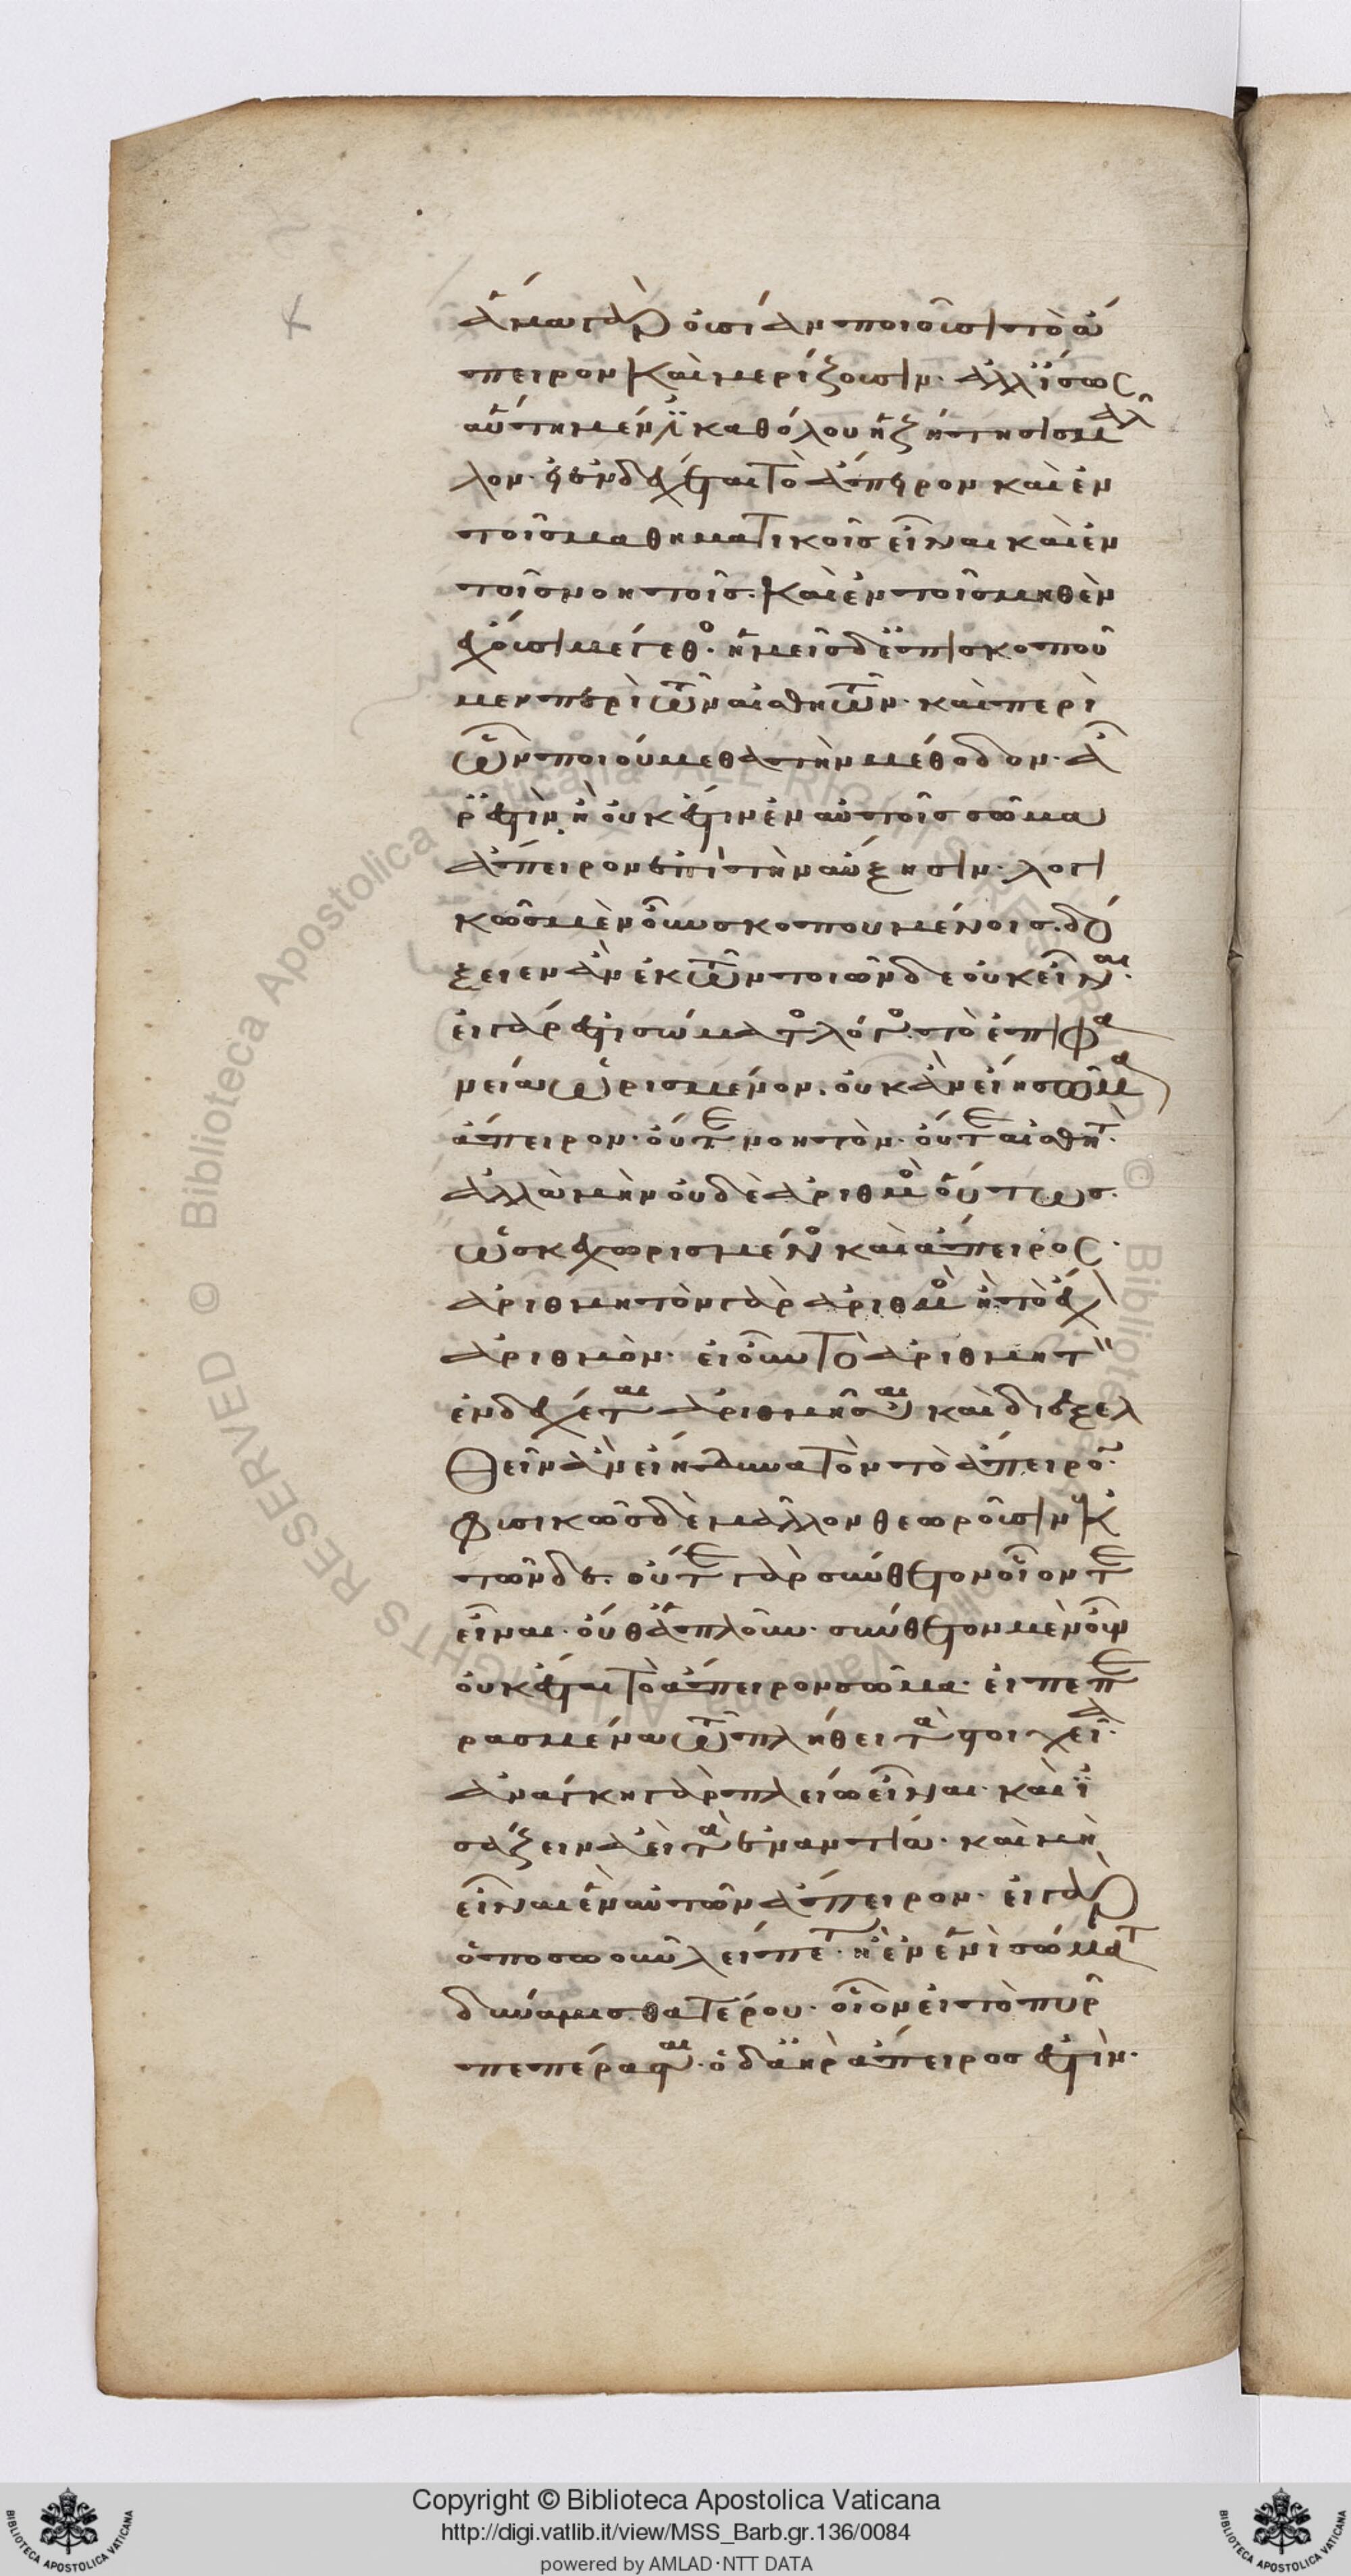 ἅμα γὰρ οὐσίαν ποιοῦσι τὸ ἄ
πειρον καὶ μερίζουσιν. ἀλλ' ἴσως
αὕτη μὲν ἡ καθόλου ἡ ζήτησις μᾶλ
λον. εἰ ἐνδέχεται τὸ ἄπειρον καὶ ἐν
τοῖς μαθηματικοῖς εἶναι καὶ ἐν
τοῖς νοητοῖς. καὶ ἐν τοῖς μηθὲν
ἔχουσι μέγεθος. ἡμεῖς δ' ἐπισκοποῦ
μεν περὶ τῶν αἰσθητῶν. καὶ περὶ
ὧν ποιούμεθα τὴν μέθοδον. ἆ
ρ' ἐστὶν ἢ οὐκ ἔστιν ἐν αὐτοῖς σῶμα
ἄπειρον ἐπὶ τὴν αὔξησιν. λογι
κῶς μὲν οὖν σκοπουμένοις. δό
ξειεν ἂν ἐκ τῶν τοιῶνδε οὐκ εἶναι.
εἰ γάρ ἐστι σώματος λόγος. τὸ ἐπιφα
νείᾳ ὡρισμένον. οὐκ ἂν εἴη σῶμα
ἄπειρον. οὔτε νοητὸν. οὔτε αἰσθητὸν.
ἀλλὰ μὴν οὐδὲ ἀριθμὸς οὕτως.
ὡς κεχωρισμένος καὶ ἄπειρος.
ἀριθμητὸν γὰρ ἀριθμὸς ἢ τὸ ἔχον
ἀριθμὸν. εἰ οὖν τὸ ἀριθμητὸν
ἐνδέχεται ἀριθμῆσαι καὶ διεξελ
θεῖν ἂν εἴη δυνατὸν τὸ ἄπειρον.
φυσικῶς δὲ μᾶλλον θεωροῦσιν ἐκ
τῶνδε. οὔτε γὰρ σύνθετον οἷόν τε
εἶναι. οὔθ' ἁπλοῦν. σύνθετον μὲν οὖν
οὐκ ἔσται τὸ ἄπειρον σῶμα. εἰ πεπε
ρασμένα τῷ πλήθει τὰ στοιχεῖα.
ἀνάγκη γὰρ πλείω εἶναι. καὶ ἰ
σάζειν ἀεὶ τὰ ἐναντία. καὶ μὴ
εἶναι ἓν αὐτῶν ἄπειρον. εἰ γὰρ
ὁποσῳοῦν λείπεται ἡ ἐν ἑνὶ σώματι
δύναμις θατέρου. οἷον εἰ τὸ πῦρ
πεπέρασται. ὁ δ' ἀὴρ ἄπειρος ἐστὶν.
Copyright © Biblioteca Apostolica Vaticana
http://digi.vatlib.it/view/MSS_Barb.gr.136/0084
powered by AMLAD·NTT DATA